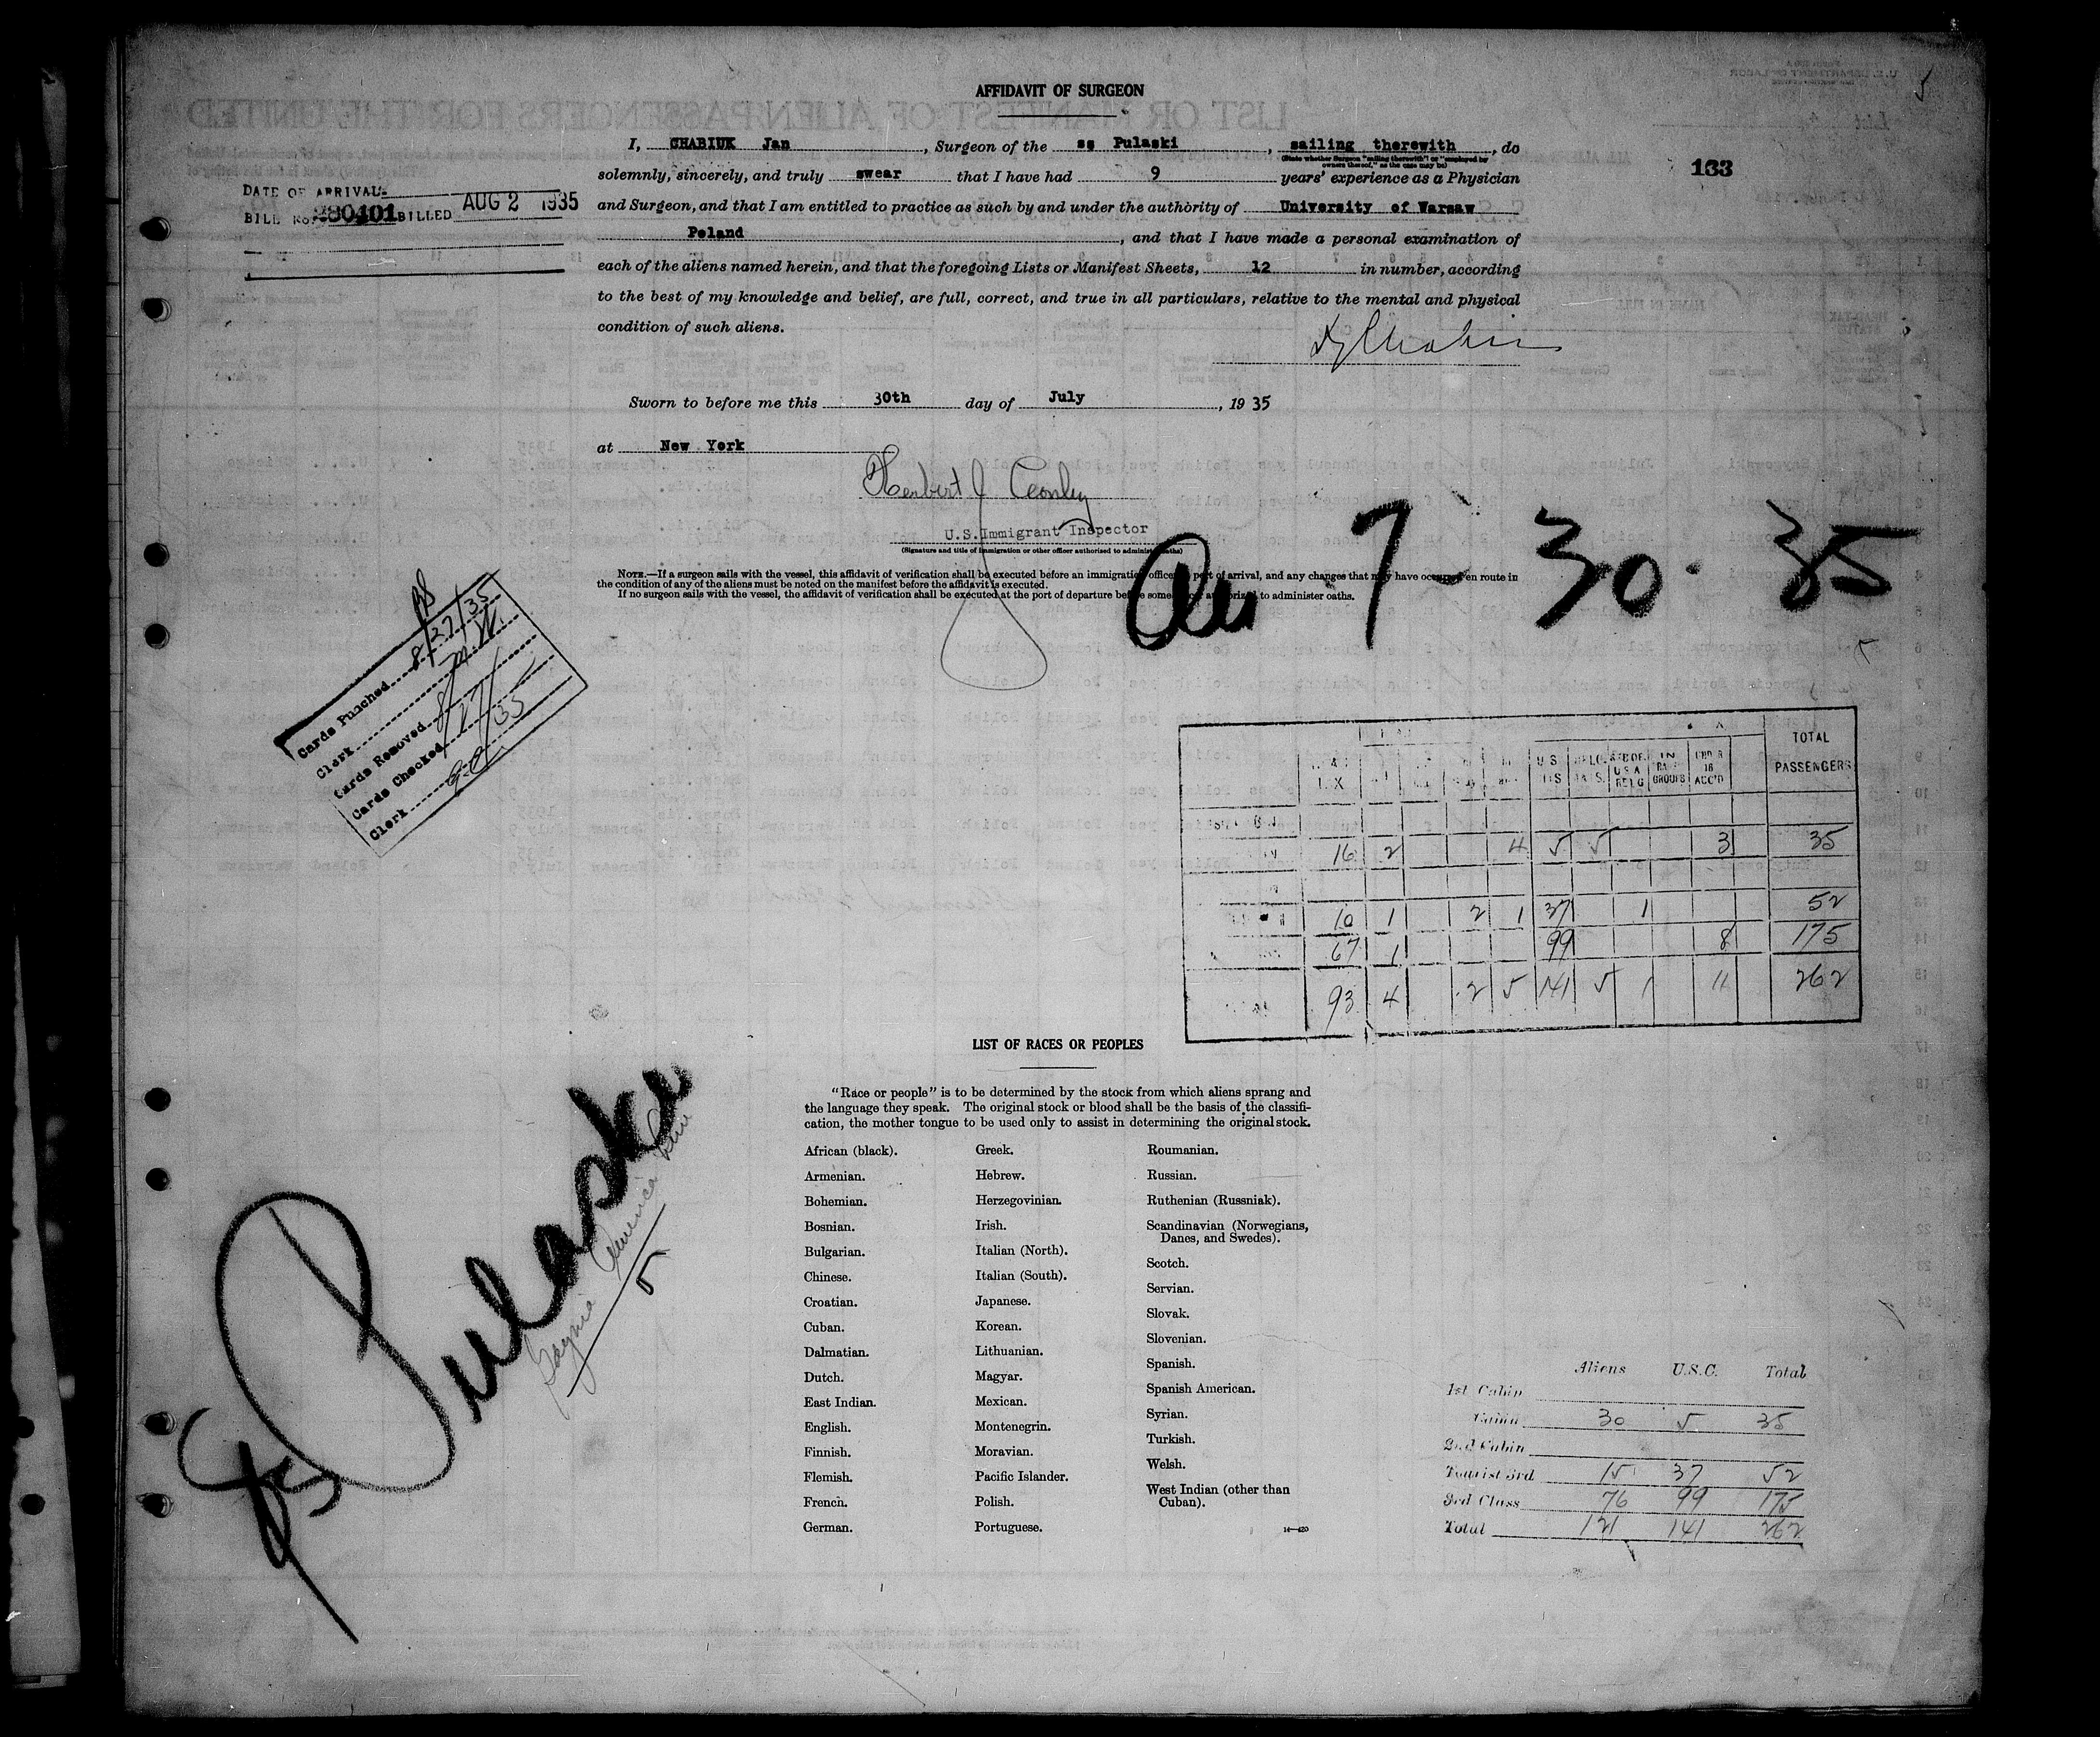 AFFIDAVIT OF SURGEON
I, CHABIUK Jan, Surgeon of the ss Pulaski, sailing therewith, do
(State whether Surgeon "sailing therewith" or "employed by
owners thereof," as the case may be)
solemnly, sincerely, and truly swear that I have had 9 years' experience as a Physician
and Surgeon, and that I am entitled to practice as such by and under the authority of University of Warsaw
Poland, and that I have made a personal examination of
each of the aliens named herein, and that the foregoing Lists or Manifest Sheets, 12 in number, according
to the best of my knowledge and belief, are full, correct, and true in all particulars, relative to the mental and physical
condition of such aliens.
163
DATE OF ARRIVAL
BILL No. 280401 BILLED AUG 2 1935
Sworn to before me this 30th day of July, 1935
at New York
Herbert J Conley
U.S.Immigrant Inspector
(Signature and title of immigration or other officer authorized to administer oaths)
NOTE.—If a surgeon sails with the vessel, this affidavit of verification shall be executed before an immigration officer port of arrival, and any changes that may have occurred en route in
the condition of any of the aliens must be noted on the manifest before the affidavit is executed.
If no surgeon sails with the vessel, the affidavit of verification shall be executed at the port of departure before some authorized to administer oaths.
7 - 30 - 35
Cards Punched 8/27/35
Clerk
Cards Removed
Cards Checked 8/27/35
Clerk
TOTAL
PASSENGERS
U S
IN
GROUPS
16
ACC'D
16 2 4 5 5 3 35
10 1 2 1 37 1 52
67 1 99 8 175
93 4 2 5 141 5 1 11 262
LIST OF RACES OR PEOPLES
"Race or people" is to be determined by the stock from which aliens sprang and
the language they speak. The original stock or blood shall be the basis of the classifi-
cation, the mother tongue to be used only to assist in determining the original stock.
African (black).
Armenian.
Bohemian.
Bosnian.
Bulgarian.
Chinese.
Croatian.
Cuban.
Dalmatian.
Dutch.
East Indian.
English.
Finnish.
Flemish.
French.
German.
Greek.
Hebrew.
Herzegovinian.
Irish.
Italian (North).
Italian (South).
Japanese.
Korean.
Lithuanian.
Magyar.
Mexican.
Montenegrin.
Moravian.
Pacific Islander.
Polish.
Portuguese.
Roumanian.
Russian.
Ruthenian (Russniak).
Scandinavian (Norwegians,
Danes, and Swedes).
Scotch.
Servian.
Slovak.
Slovenian.
Spanish.
Spanish American.
Syrian.
Turkish.
Welsh.
West Indian (other than
Cuban).
SS Pulaski
Gdynia America Line
5
Aliens U.S.C. Total
1st Cabin
Cabin 30 5 35
2nd Cabin
Tourist 3rd 15 37 52
3rd Class 76 99 175
Total 121 141 262